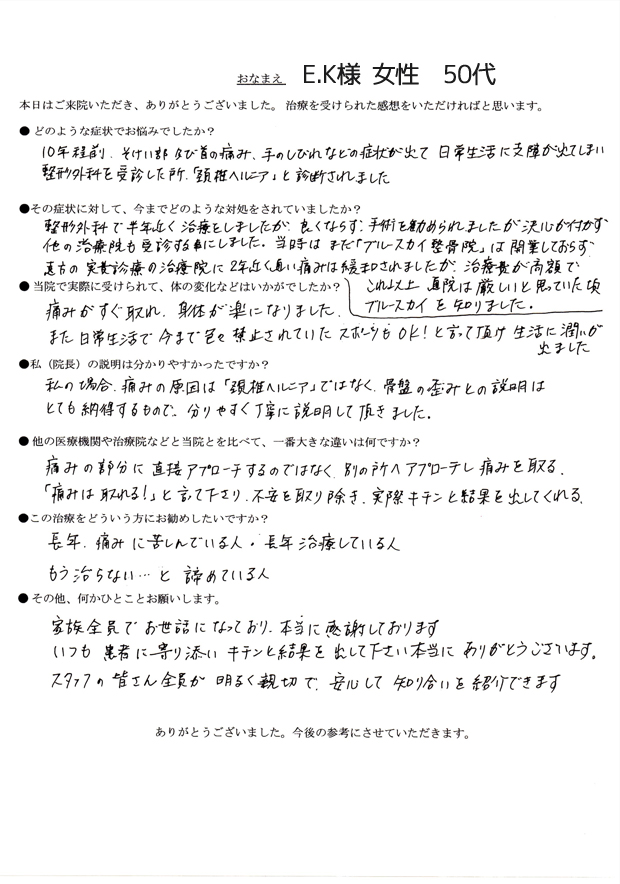 おなまえ E.K様 女性 50代
本日はご来院いただき、ありがとうございました。治療を受けられた感想をいただければと思います。
● どのような症状でお悩みでしたか？
10年程前、そけい部及び首の痛み、手のしびれなどの症状が出て 日常生活に支障が出てしまい
整形外科を受診した所、「頚椎ヘルニア」と診断されました
●その症状に対して、今までどのような対処をされていましたか？
整形外科で半年近く治療をしましたが、良くならず、手術を勧められましたが決心が付かず
他の治療院も受診する事にしました。当時は まだ「ブルースカイ整骨院」は開業しておらず
遠方の実費診療の治療院に2年近く通い痛みは緩和されましたが、治療費が高額で
これ以上 通院は厳しいと思っていた頃
ブルースカイを知りました。
● 当院で実際に受けられて、体の変化などはいかがでしたか？
痛みがすぐ取れ、身体が楽になりました。
また日常生活で今まで色々禁止されていたスポーツもOK！と言って頂け 生活に潤いが
出ました
●私（院長）の説明は分かりやすかったですか？
私の場合、痛みの原因は「頚椎ヘルニア」ではなく、骨盤の歪みとの説明は
とても納得するもので、分りやすく丁寧に説明して頂きました。
● 他の医療機関や治療院などと当院とを比べて、一番大きな違いは何ですか？
痛みの部分に直接アプローチするのではなく、別の所へアプローチし痛みを取る、
「痛みは取れる！」と言って下さり、不安を取り除き、実際キチンと結果を出してくれる、
●この治療をどういう方にお勧めしたいですか？
長年、痛みに苦しんでいる人・長年治療している人
もう治らない…と 諦めている人
● その他、何かひとことお願いします。
家族全員でお世話になっており、本当に感謝しております
いつも 患者に寄り添い キチンと結果を出して下さい本当に ありがとうございます。
スタッフの皆さん全員が 明るく親切で、安心して 知り合いを紹介できます
ありがとうございました。今後の参考にさせていただきます。